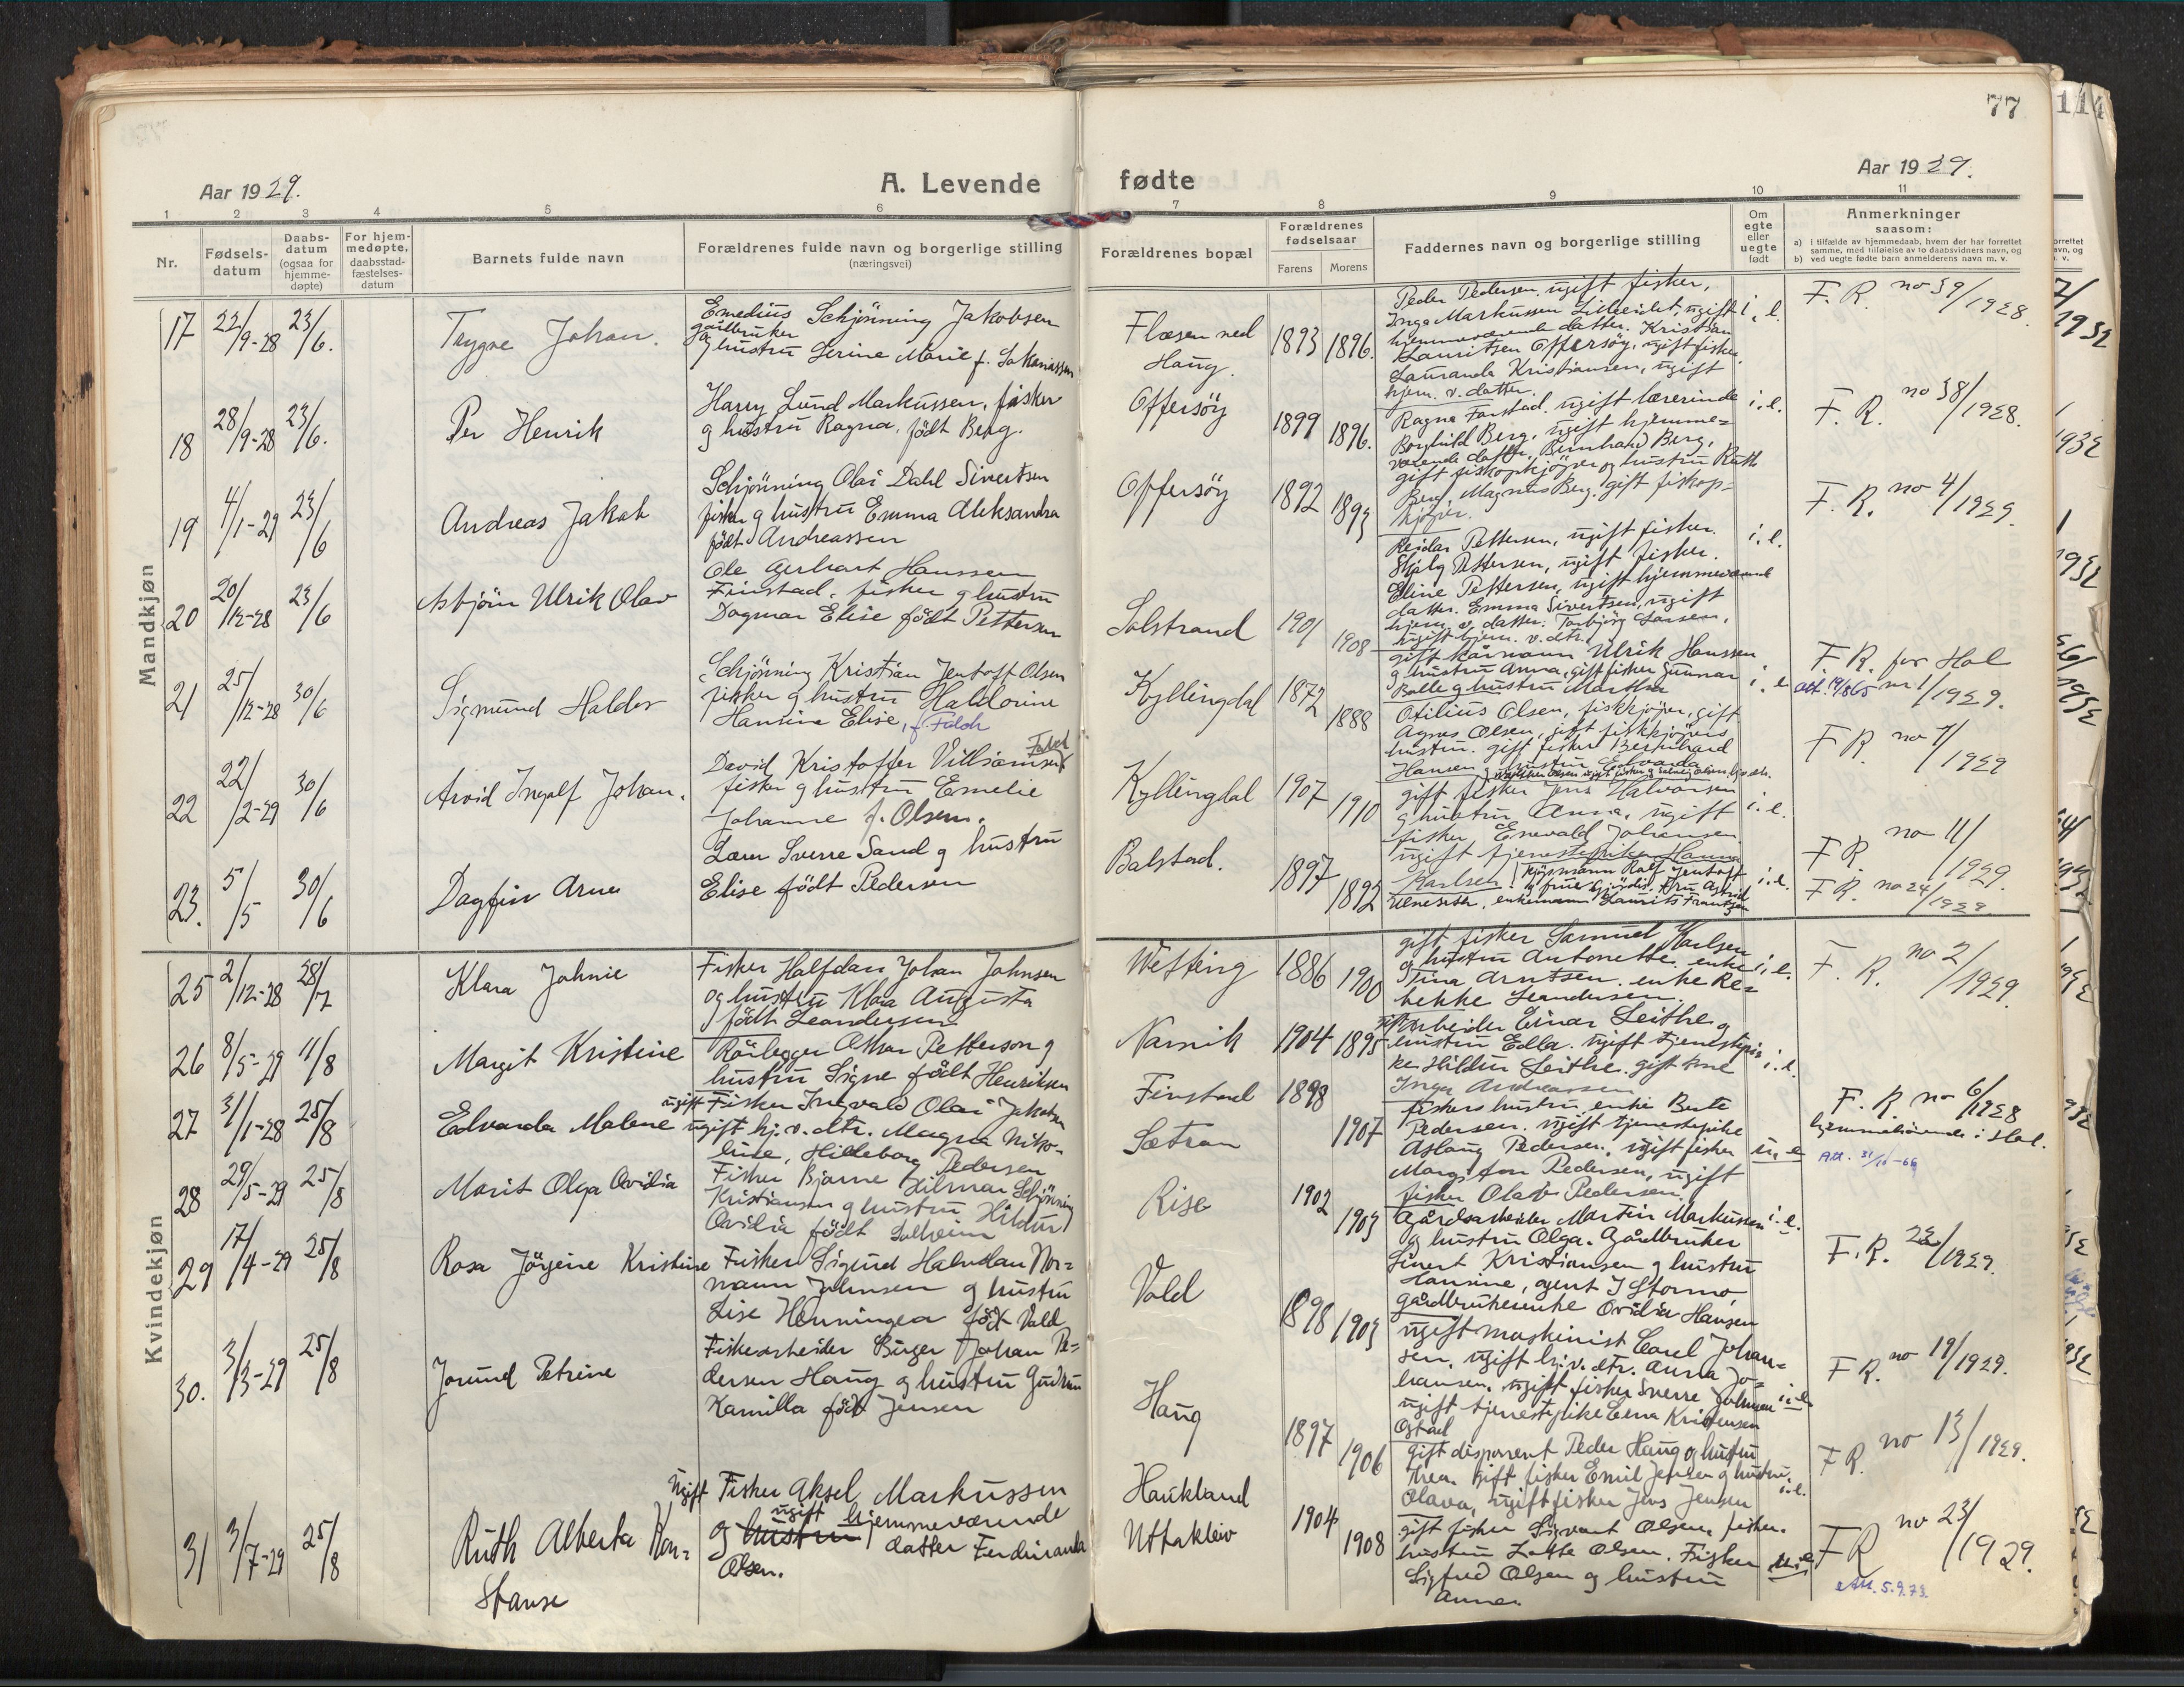 77
114
Aar 1929.
A. Levende fødte
Aar 1929.
1 2 3 4 5 6 7 8 9 10 11
Nr.
Fødsels-
datum
Daabs-
datum
(ogsaa for
hjemme-
døpte)
For hjem-
medøpte,
daabsstad-
fæstelses-
datum
Barnets fulde navn
Forældrenes fulde navn og borgerlige stilling
(næringsvei)
Forældrenes bopæl
Forældrenes
fødselsaar
Farens Morens
Faddernes navn og borgerlige stilling
Om
egte
eller
uegte
født
Anmerkninger
saasom:
a) i tilfælde av hjemmedaab, hvem der har forrettet
samme, med tilføielse av to daabsvidners navn, og
b) ved uegte fødte barn anmelderens navn m. v.
Mandkjøn
17 22/9-28 23/6. Trygve Johan.
Emedius Schjönning Jakobsen
gårdbruker
og hustru Serine Marie f. Sakariassen
Flæsen ned
Haug.
1893 1896.
Peder Pedersen, ugift fisker,
Inga Markussen Lilleeidet, ugift
hjemmeværende datter. Kristian
Lauritsen Offersöy, ugift fisker.
Lauranda Kristiansen, ugift
hjem. v. datter.
i. l.
F. R. no 39/1928.
18 28/9-28 23/6. Per Henrik
Harry Lund Markussen, fisker
og hustru Ragna, födt Berg.
Offersöy
1899 1896.
Ragna Farstad. ugift lærerinde
Borghild Berg, ugift hjemme=
værende datter, Bernhard Berg,
gift fiskopkjöper og hustru Ruth
Berg, Magnus Berg. gift fiskop=
kjöper.
i. l.
F. R. no 38/1928.
19 4/1-29 23/6 Andreas Jakob
Schjönning Olai Dahl Sivertsen
fisker og hustru Emma Aleksandra
födt Andreassen
Offersöy
1892 1893
Reidar Pettersen, ugift fisker.
Skjalg Pettersen, ugift fisker.
Eline Pettersen, ugift hjemmeværende
datter. Emma Sivertsen, ugift
hjem. v. datter. Torbjörg Larsen,
ugift hjem. v. dtr.
i. l.
F. R. no 4/1929.
20 20/12-28 23/6 Asbjörn Ulrik Olav
Ole Gerhart Hanssen
Finstad, fisker og hustru
Dagmar Elise födt Pettersen
Solstrand
1901 1908
gift kårmann Ulrik Hanssen
og hustru Anna, gift fisker Gunnar
Balle og hustru Martha
i. l
F. R. for Hol
nr 1/1929.
21 25/12-28 30/6 Sigmund Haldor
Schjönning Kristian Jentoft Olsen
fisker og hustru Haldorine
Hansine Elise, f. Falch
Kyllingdal
1872 1888
Otilius Olsen, fiskkjöper, gift
Agnes Olsen, gift fiskkjöpers
hustru. gift fisker Bernhard
Hansen og hustru Edvarda
F R. no 7/1929
22 22/2-29 30/6 Arvid Ingolf Johan.
David Kristoffer Villiamsen
Falch
fisker og hustru Emelie
Johanne f. Olsen.
Kyllingdal
1907 1910
gift fisker Jens Halvorsen
og hustru Anna, ugift
fisker Enevald Johansen
ugift tjenestepike Hanna
Karlsen.
i. l.
F R. no 11/1929.
23. 5/5 30/6 Dagfin Arne
Lærer Sverre Sand og hustru
Elise födt Pedersen
Balstad.
1897 1892
i. l.
F R. no 24/1929.
Kvindekjøn
25 2/12-28 28/7 Klara Johnie
Fisker Halfdan Johan Johnsen
og hustru Klara Augusta
födt Leandersen
Westing
1886 1900
gift fisker Samuel Karlsen
og hustru Antonette. enke
Tina Arntsen. enke Re=
bekke Leandersen.
i. l.
F. R. no 2/1929.
26 8/5-29 11/8 Margit Kristine
Rörlegger Pettersen og
hustru Signe födt Henriksen
Narvik
1904 1895
Arbeider Einar Leithe og
hustru Edla. ugift tjenestepi=
ke Hildur Leithe. gift frue
Inga Andreassen
i. l.
27 31/1-28 25/8 Edvarda Malene
ugift Fisker Ingvald Olai Jakobsen
ugift hj. v. dtr. Magna Niko-
line, Hildeborg Pedersen
Finstad
Sætran
1898 1907
fiskers hustru, enke Berte
Pedersen. ugift tjenestepike
Aslaug Pedersen. ugift fisker
Margido Pedersen, ugift
fisker Olav Pedersen.
u. e
F. R. no 6/1928
hjemmehörende i Hol.
28 29/5-29 25/8 Marit Olga Ovidia
Fisker Bjarne Hilmar Schjönning
Kristiansen og hustru Hildur
Ovidia födt Solheim
Rise
1902 1903
Gårdsarbeider Martin Markussen
og hustru Olga. Gårdbruker
Sivert Kristiansen og hustru
Hansine, agent J Stormo,
gårdbrukerenke Ovidia Hansen
i. e.
F. R. 22/1929.
29 17/4-29 25/8 Rosa Jörgine Kristine
Fisker Sigurd Halvdan Nor=
mann Johnsen og hustru
Lise Henningea födt Vold
Vold
1898 1903
ugift maskinist Carel Johan=
sen, ugift hj. v. dtr. Anna Jo=
hansen, ugift fisker Sverre Johnsen
ugift tjenestepike Lena Kristensen
Ostad
i. e.
F R. no 19/1929.
30. 3/3-29 25/8 Jorund Petrine
Fiskearbeider Birger Johan Pe=
dersen Haug og hustru Gudrun
Kamilla födt Jensen
Haug
1897 1906
gift disponent Peder Haug og hustru
Thea. gift fisker Emil Jensen og hustru
Olava, ugift fisker Jens Jensen
i. l.
F R. no 13/1929.
31 3/7-29 25/8 Ruth Alberta Kon=
stanse
ugift Fisker Aksel Markussen
ugift
og hustru hjemmeværende
datter Ferdinanda
Olsen.
Haukland
Uttakleiv
1904 1908
gift fisker Sigvart Olsen, fisker.
hustru Lotte Olsen. Fisker
Sigfred Olsen og hustru
Anna.
u. e
F R no 23/1929.
Att. 5.9.73.